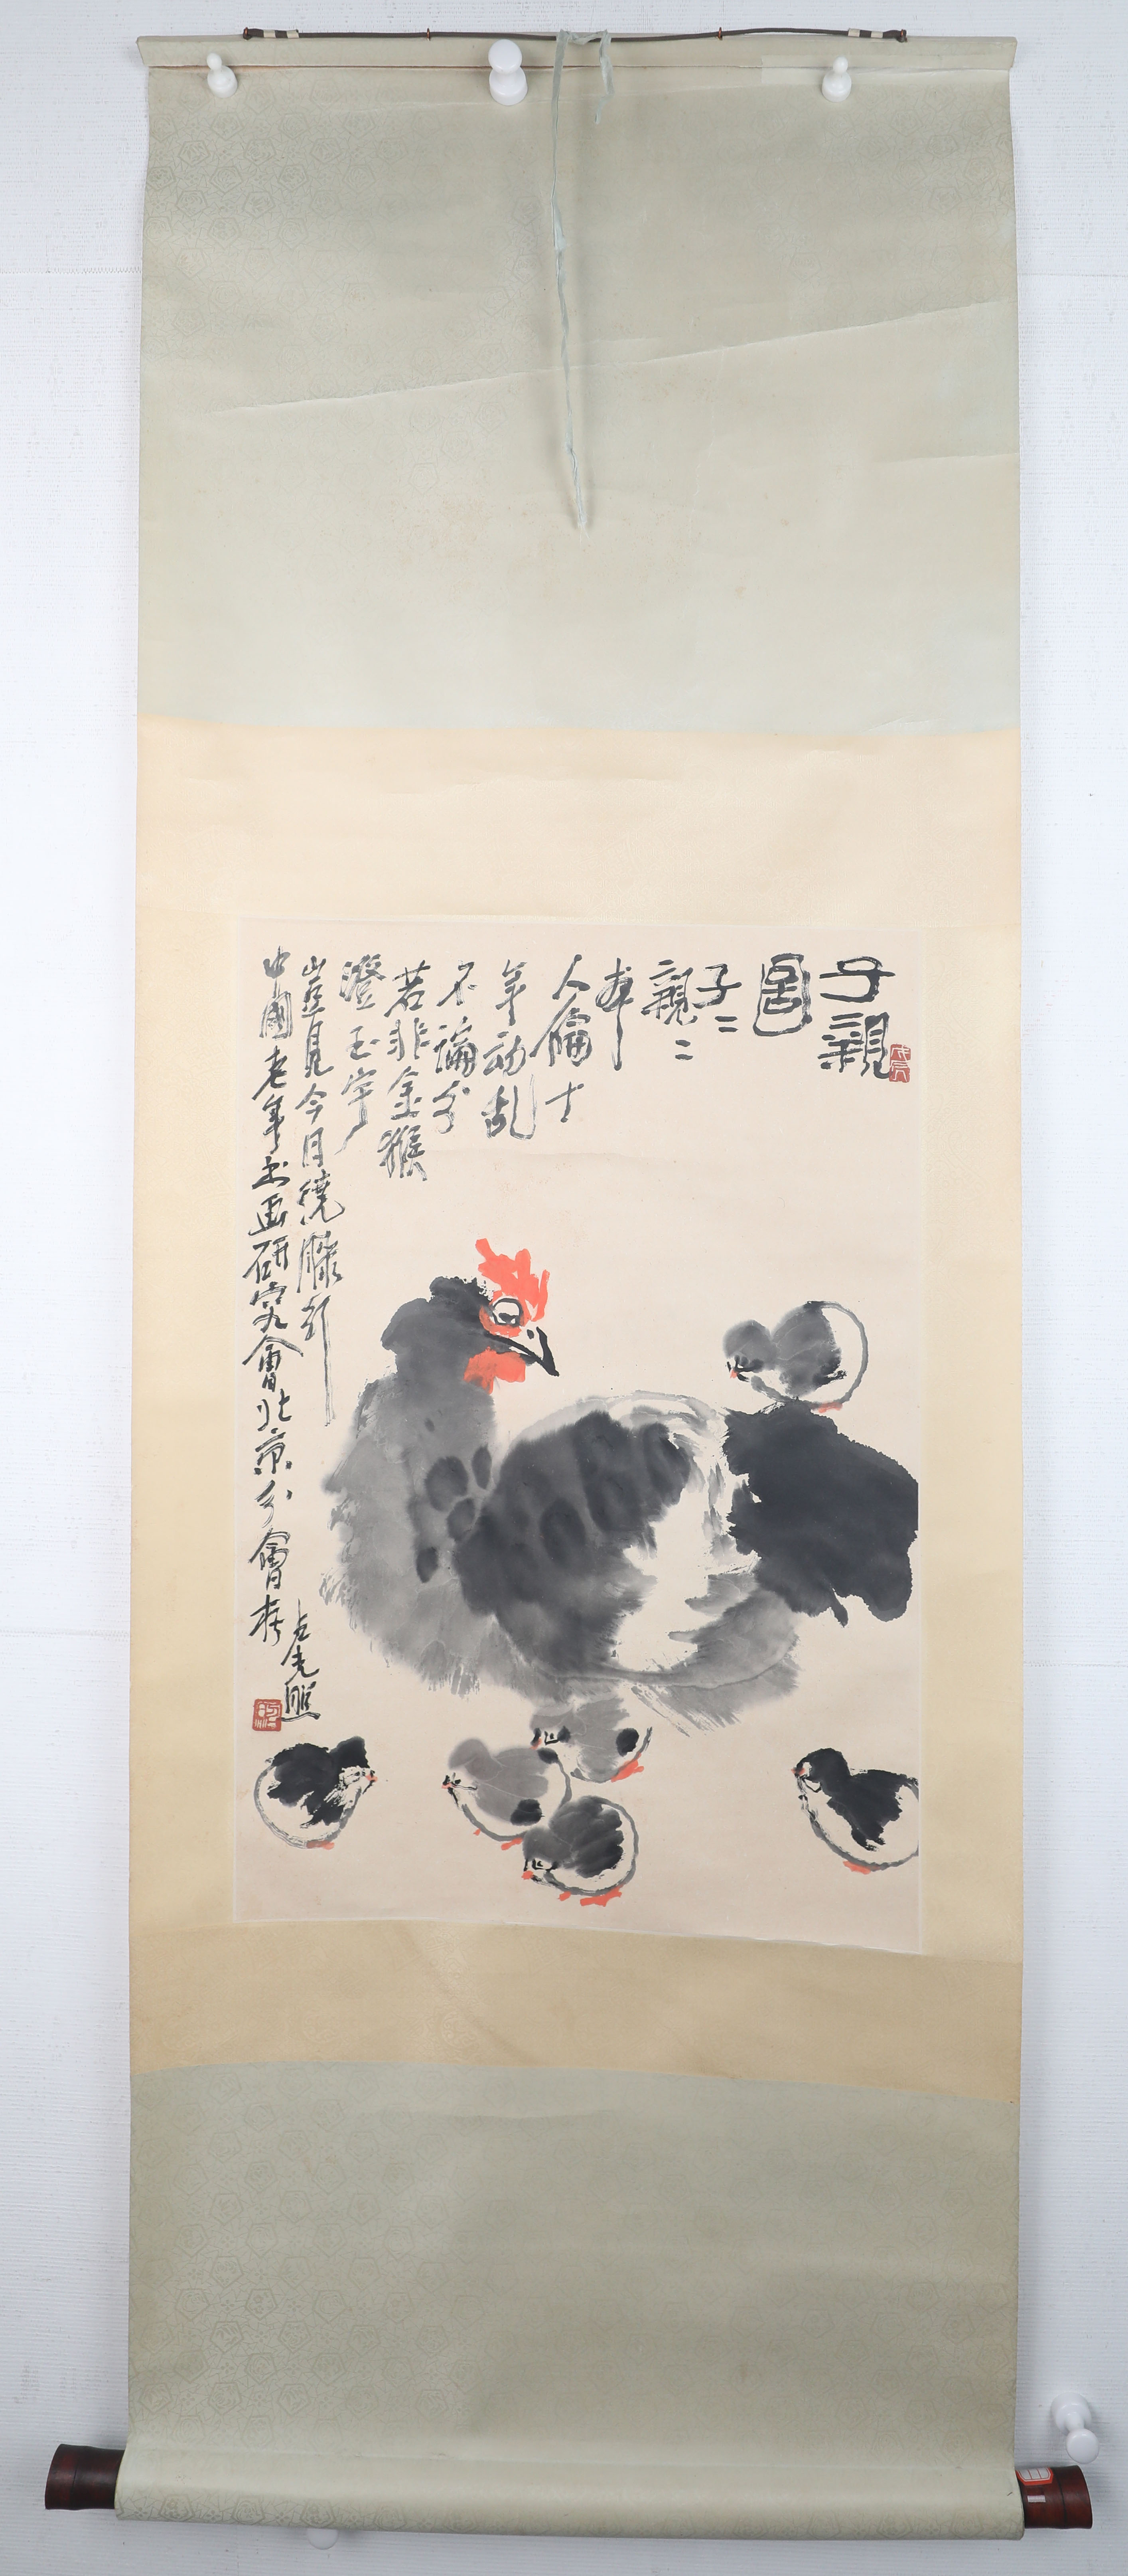 子親
圖
子二
親二
本
人倫十
年動乱
不論分
若非金猴
澄玉宇
豈見今日繞膝
中國老年书画研究會北京分會存
戊辰